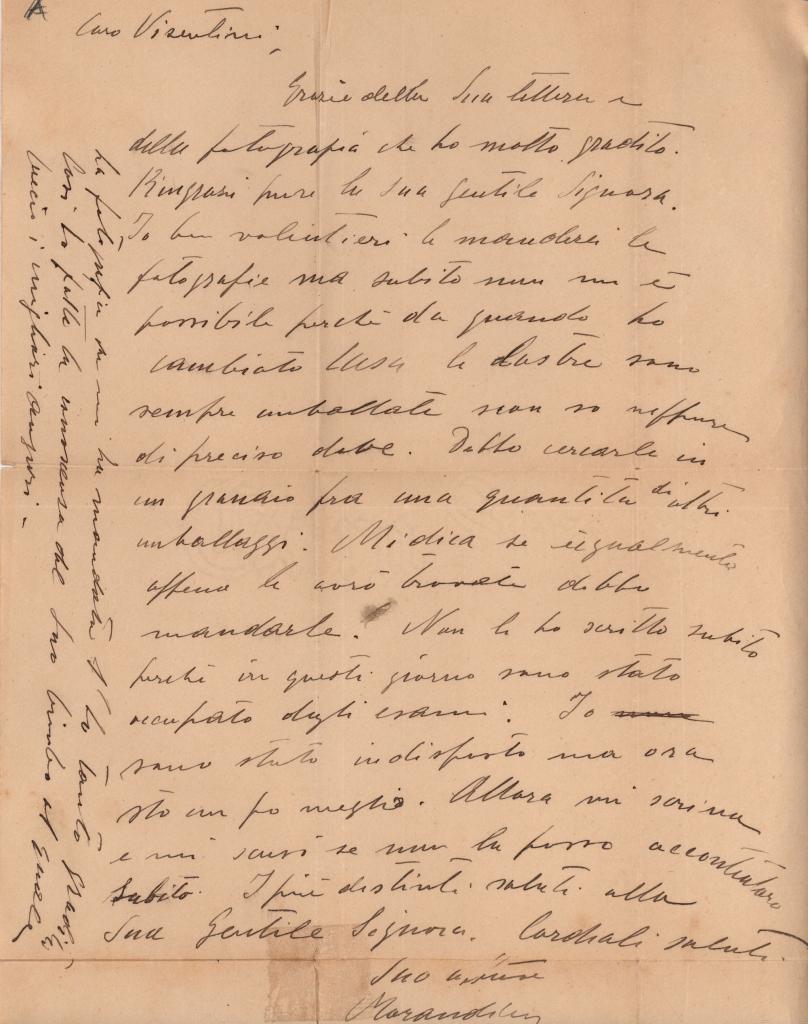 Caro Visentini,
Grazie della Sua lettera e
della fotografia che ho molto gradito.
Ringrazi pure la Sua Gentile Signora.
Io ben volentieri le manderei le
fotografie ma subito non mi è
possibile perchè da quando ho
cambiato casa le lastre sono
sempre imballate e non so neppure
di preciso dove. Debbo cercarle in
un granaio fra una quantità di altri
imballaggi. Mi dica se egualmente
appena le avrò trovate debbo
mandarle. Non le ho scritto subito
perchè in questi giorni sono stato
occupato dagli esami. Io
sono stato indisposto ma ora
sto un po meglio. Allora mi scriva
e mi scusi se non la posso accontentare
subito. I più distinti saluti alla
Sua Gentile Signora. Cordiali saluti.
Suo
Morandi
La fotografia che mi ha mandata l'ho tanto gradita
Così ho fatto la conoscenza del Suo bimbo al quale
faccio i migliori auguri.